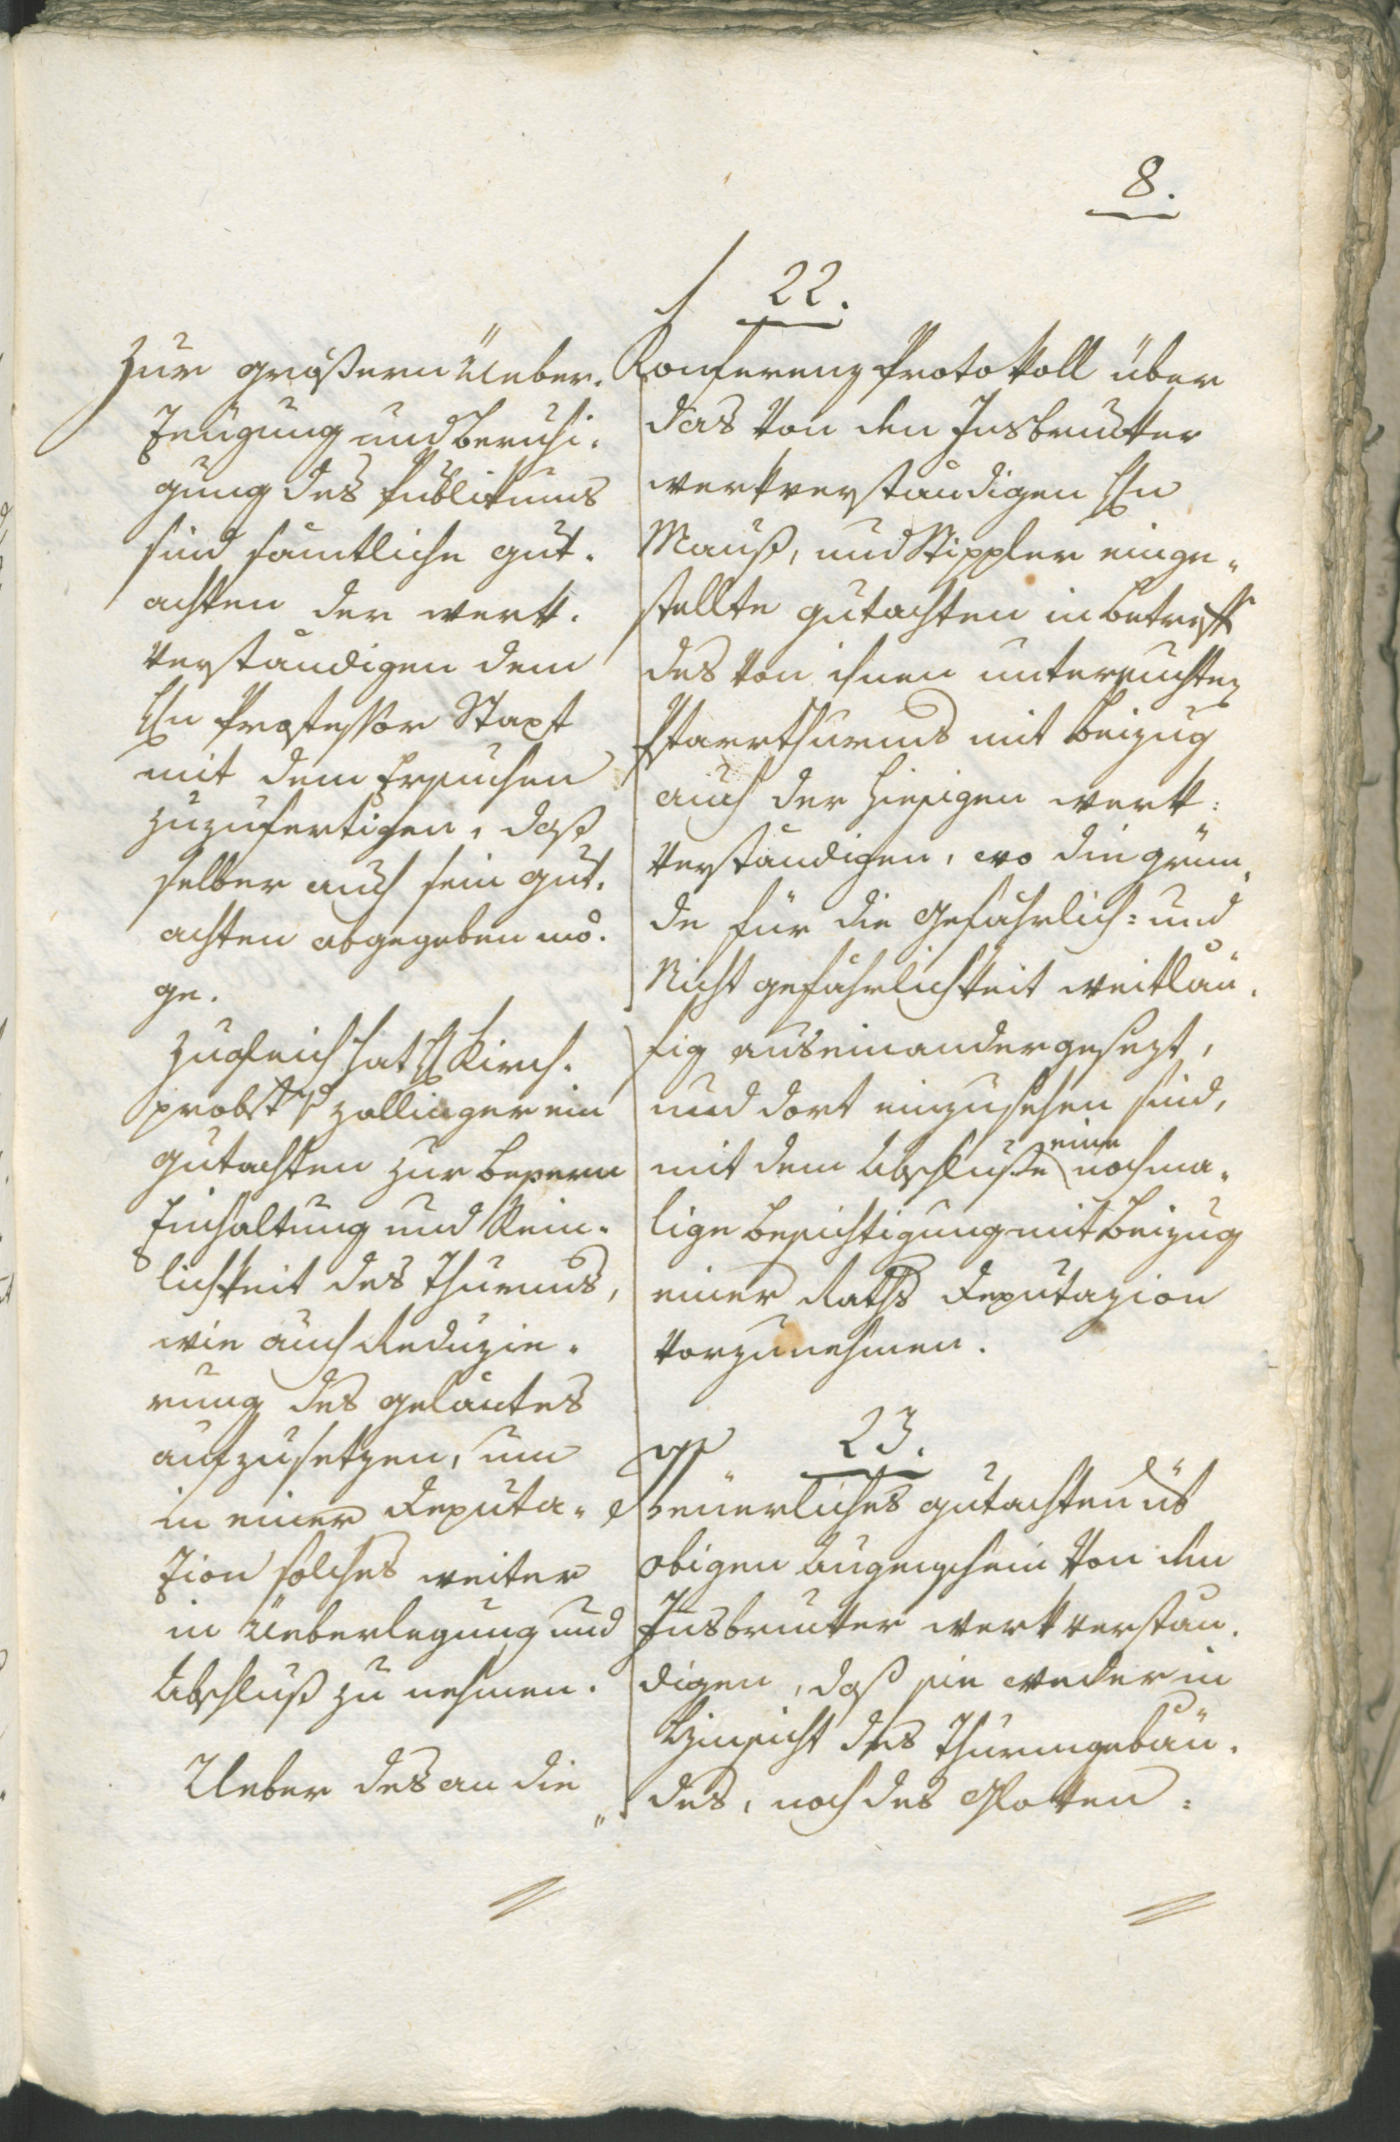 8.
22.
Zur größern Ueber-
zeugung und Beruhi-
gung des Publikums
sind sämtliche Gut-
achten der Werk-
verständigen dem
Hn Professor Stapf
mit dem Ersuchen
zuzufertigen, daß
selber auch sein Gut-
achten abgegeben mö-
ge.
Zugleich hat H Kirch-
probst v Zallinger ein
Gutachten zur bessern
Einhaltung und Rein-
lichkeit des Thurms,
wie auch Reduzie-
rung des Geläutes
aufzusetzen, um
in einer Deputa-
zion solches weiter
in Ueberlegung und
Abschluß zu nehmen.
Ueber des an die
Konferenz Protokoll über
das von den Insbrukker
Werkverständigen HHn
Mauß, und Stippler einge-
stellte Gutachten in Betreff
des von ihnen untersuchten
Pfarrthurms mit Beizug
auch der hiesigen Werk-
verständigen, wo die Grün-
de für die Gefährlich- und
Nicht gefährlichkeit weitläu-
fig auseinandergesezt,
und dort einzusehen sind,
mit dem Abschluße eine nochma-
lige Besichtigung mit Beizug
einer Raths Deputazion
vorzunehmen.
23.
Neuerliches Gutachten üb
obigen Augenschein von den
Insbrukker Werkverstän-
digen, daß sie weder in
Hinsicht des Thurmgebäu-
des, noch des Glokken-